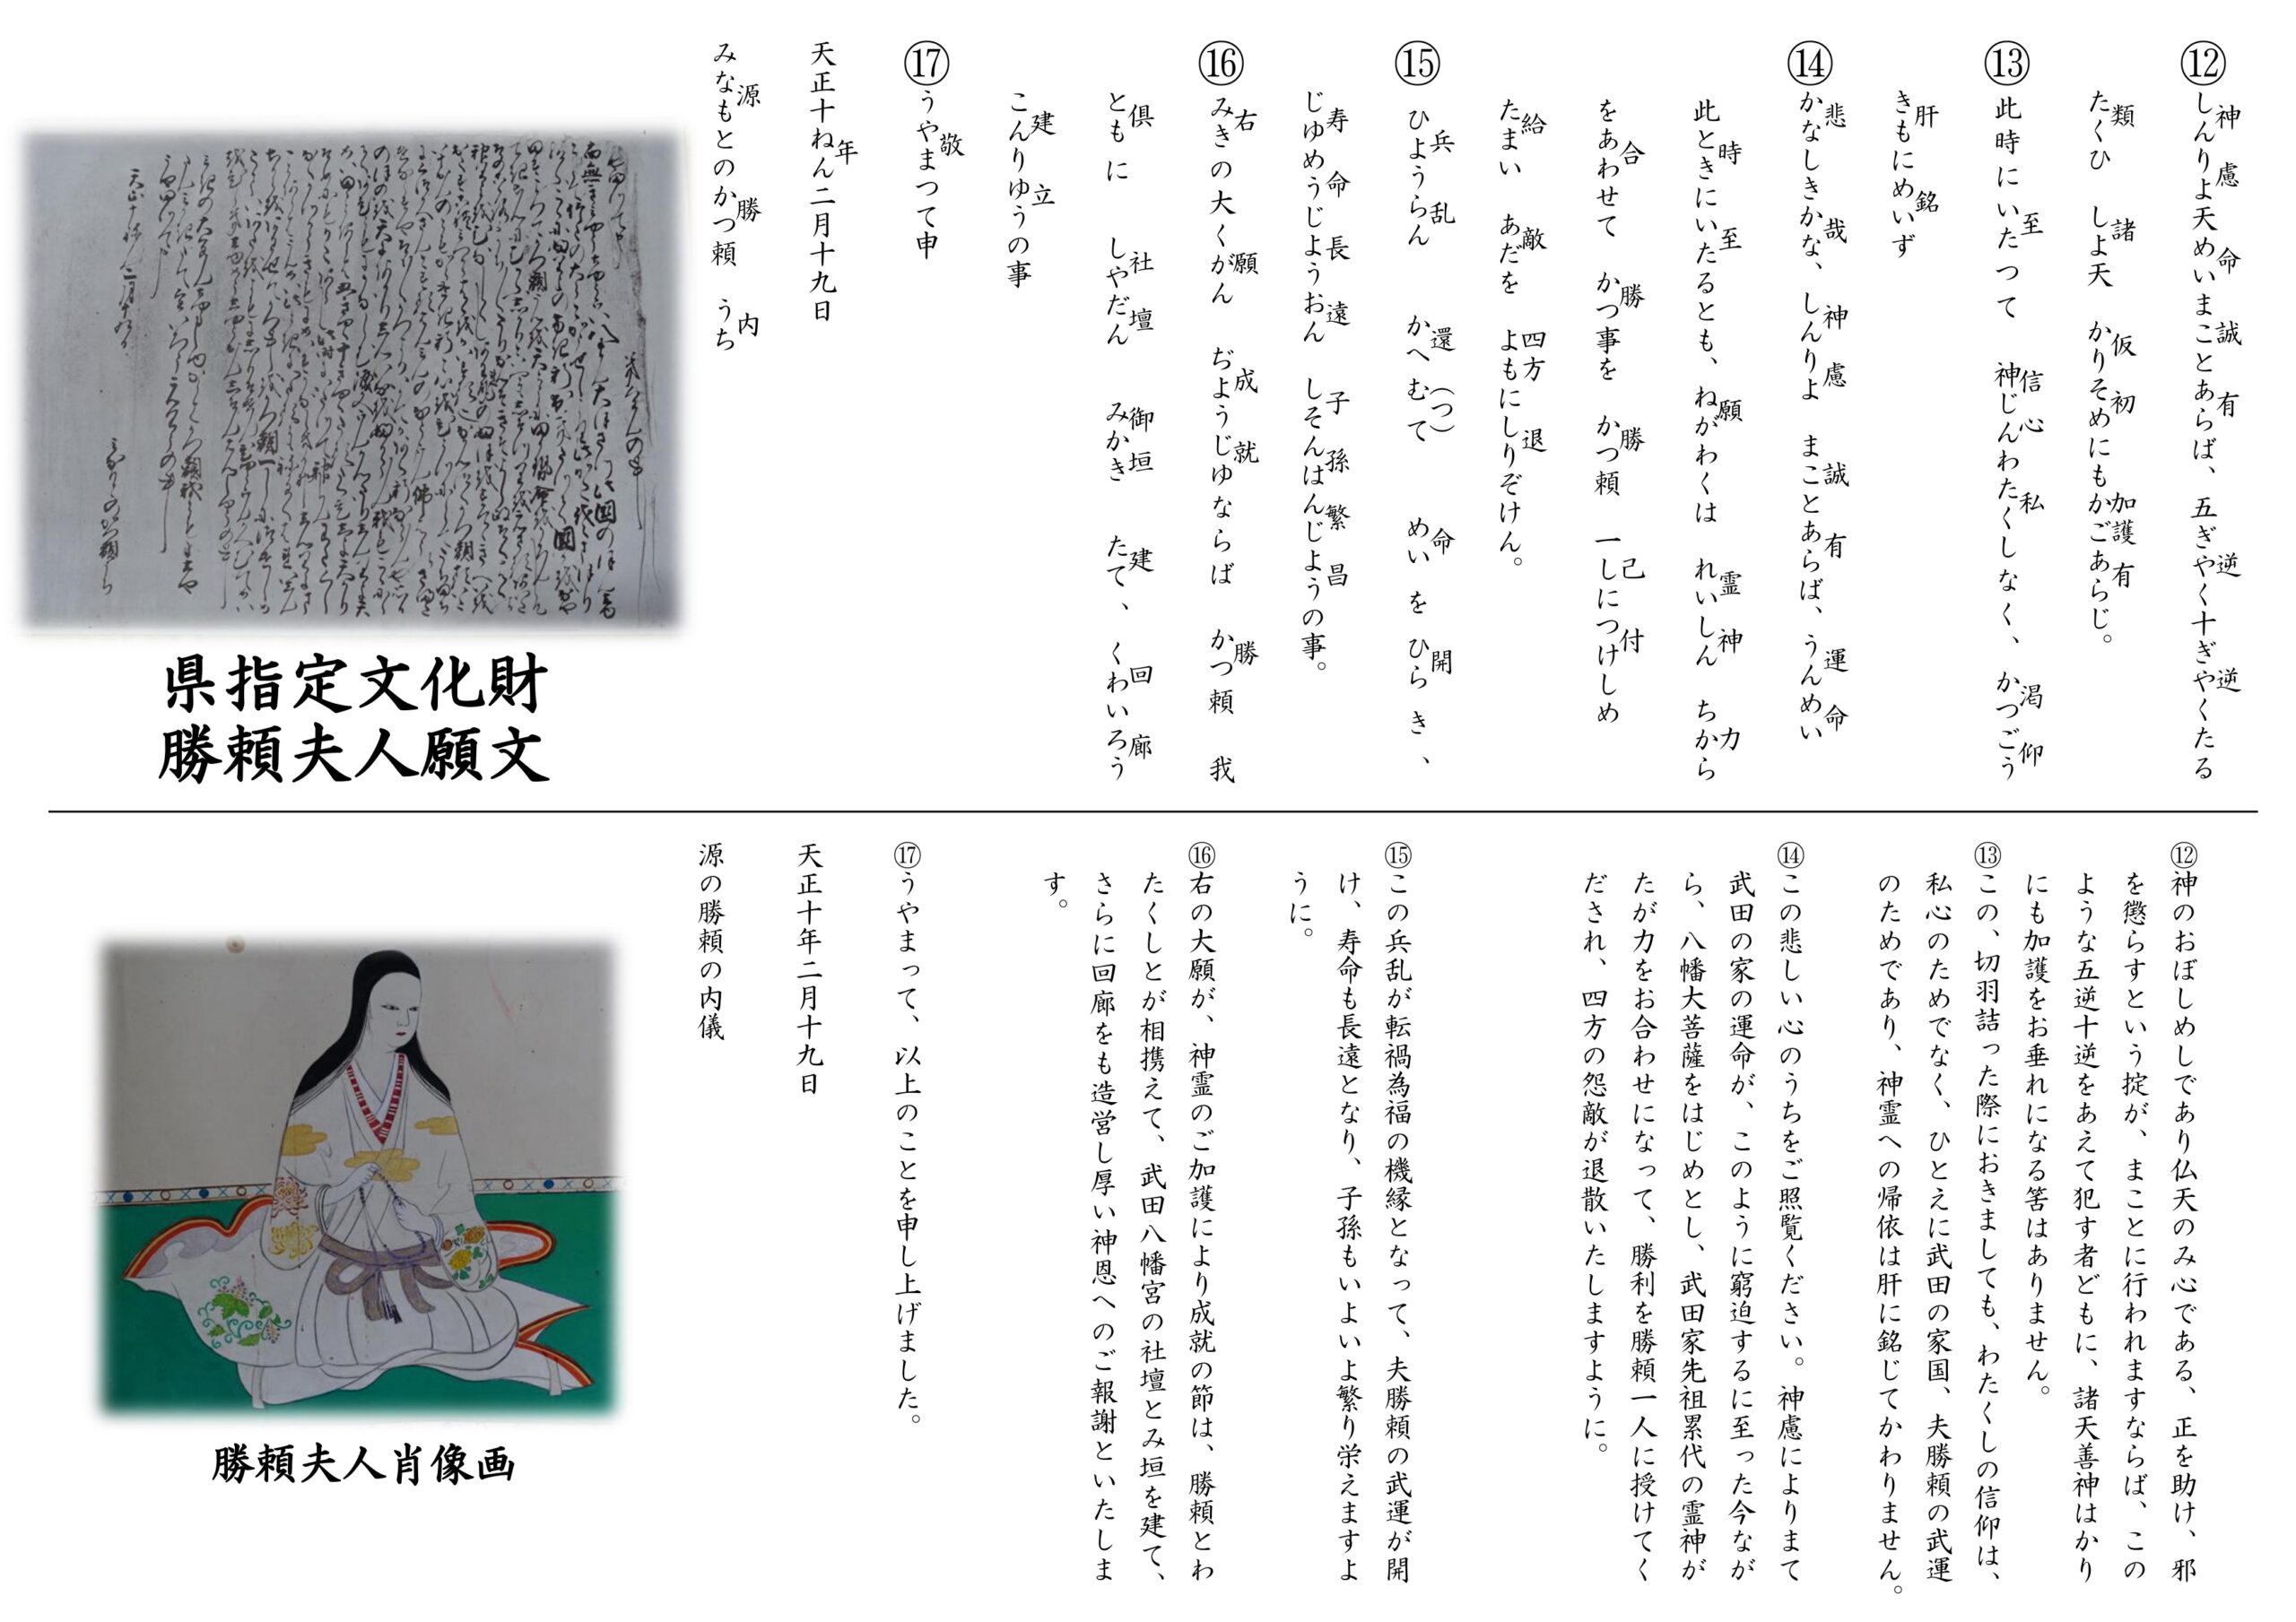 ⑫しんりよ天めいまことあらば、五ぎやく十ぎやくたる
神慮 命 誠 有 逆 逆
たくひ しよ天 かりそめにもかごあらじ。
類 諸 仮初 加護有
⑬此時にいたつて 神じんわたくしなく、かつごう
至 信心 私 渇仰
きもにめいず
肝 銘
⑭かなしきかな、しんりよ まことあらば、うんめい
悲 哉 神慮 誠 有 運命
此ときにいたるとも、ねがわくは れいしん ちから
時 至 願 霊神 力
をあわせて かつ事を かつ頼 一しにつけしめ
合 勝 勝 己 付
たまい あだを よもにしりぞけん。
給 敵 四方 退
⑮ひようらん かへむて めいを ひらき、
兵乱 還(つ) 命 開
じゆめうじようおん しそんはんじようの事。
寿命長遠 子孫繁昌
⑯みきの大くがん ぢようじゆならば かつ頼 我
右 願 成就 勝
ともに しやだん みかき たて、くわいろう
俱 社壇 御垣 建 回廊
こんりゆうの事
建立
⑰うやまつて申
敬
天正十ねん二月十九日
年
みなもとのかつ頼 うち
源 勝 内
県指定文化財
勝頼夫人願文
⑫神のおぼしめしであり仏天のみ心である、正を助け、邪
を懲らすという掟が、まことに行われますならば、この
ような五逆十逆をあえて犯す者どもに、諸天善神はかり
にも加護をお垂れになる筈はありません。
⑬この、切羽詰った際におきましても、わたくしの信仰は、
私心のためでなく、ひとえに武田の家国、夫勝頼の武運
のためであり、神霊への帰依は肝に銘じてかわりません。
⑭この悲しい心のうちをご照覧ください。神慮によりまて
武田の家の運命が、このように窮迫するに至った今なが
ら、八幡大菩薩をはじめとし、武田家先祖累代の霊神が
たが力をお合わせになって、勝利を勝頼一人に授けてく
だされ、四方の怨敵が退散いたしますように。
⑮この兵乱が転禍為福の機縁となって、夫勝頼の武運が開
け、寿命も長遠となり、子孫もいよいよ繁り栄えますよ
うに。
⑯右の大願が、神霊のご加護により成就の節は、勝頼とわ
たくしとが相携えて、武田八幡宮の社壇とみ垣を建て、
さらに回廊をも造営し厚い神恩へのご報謝といたしま
す。
⑰うやまって、以上のことを申し上げました。
天正十年二月十九日
源の勝頼の内儀
勝頼夫人肖像画